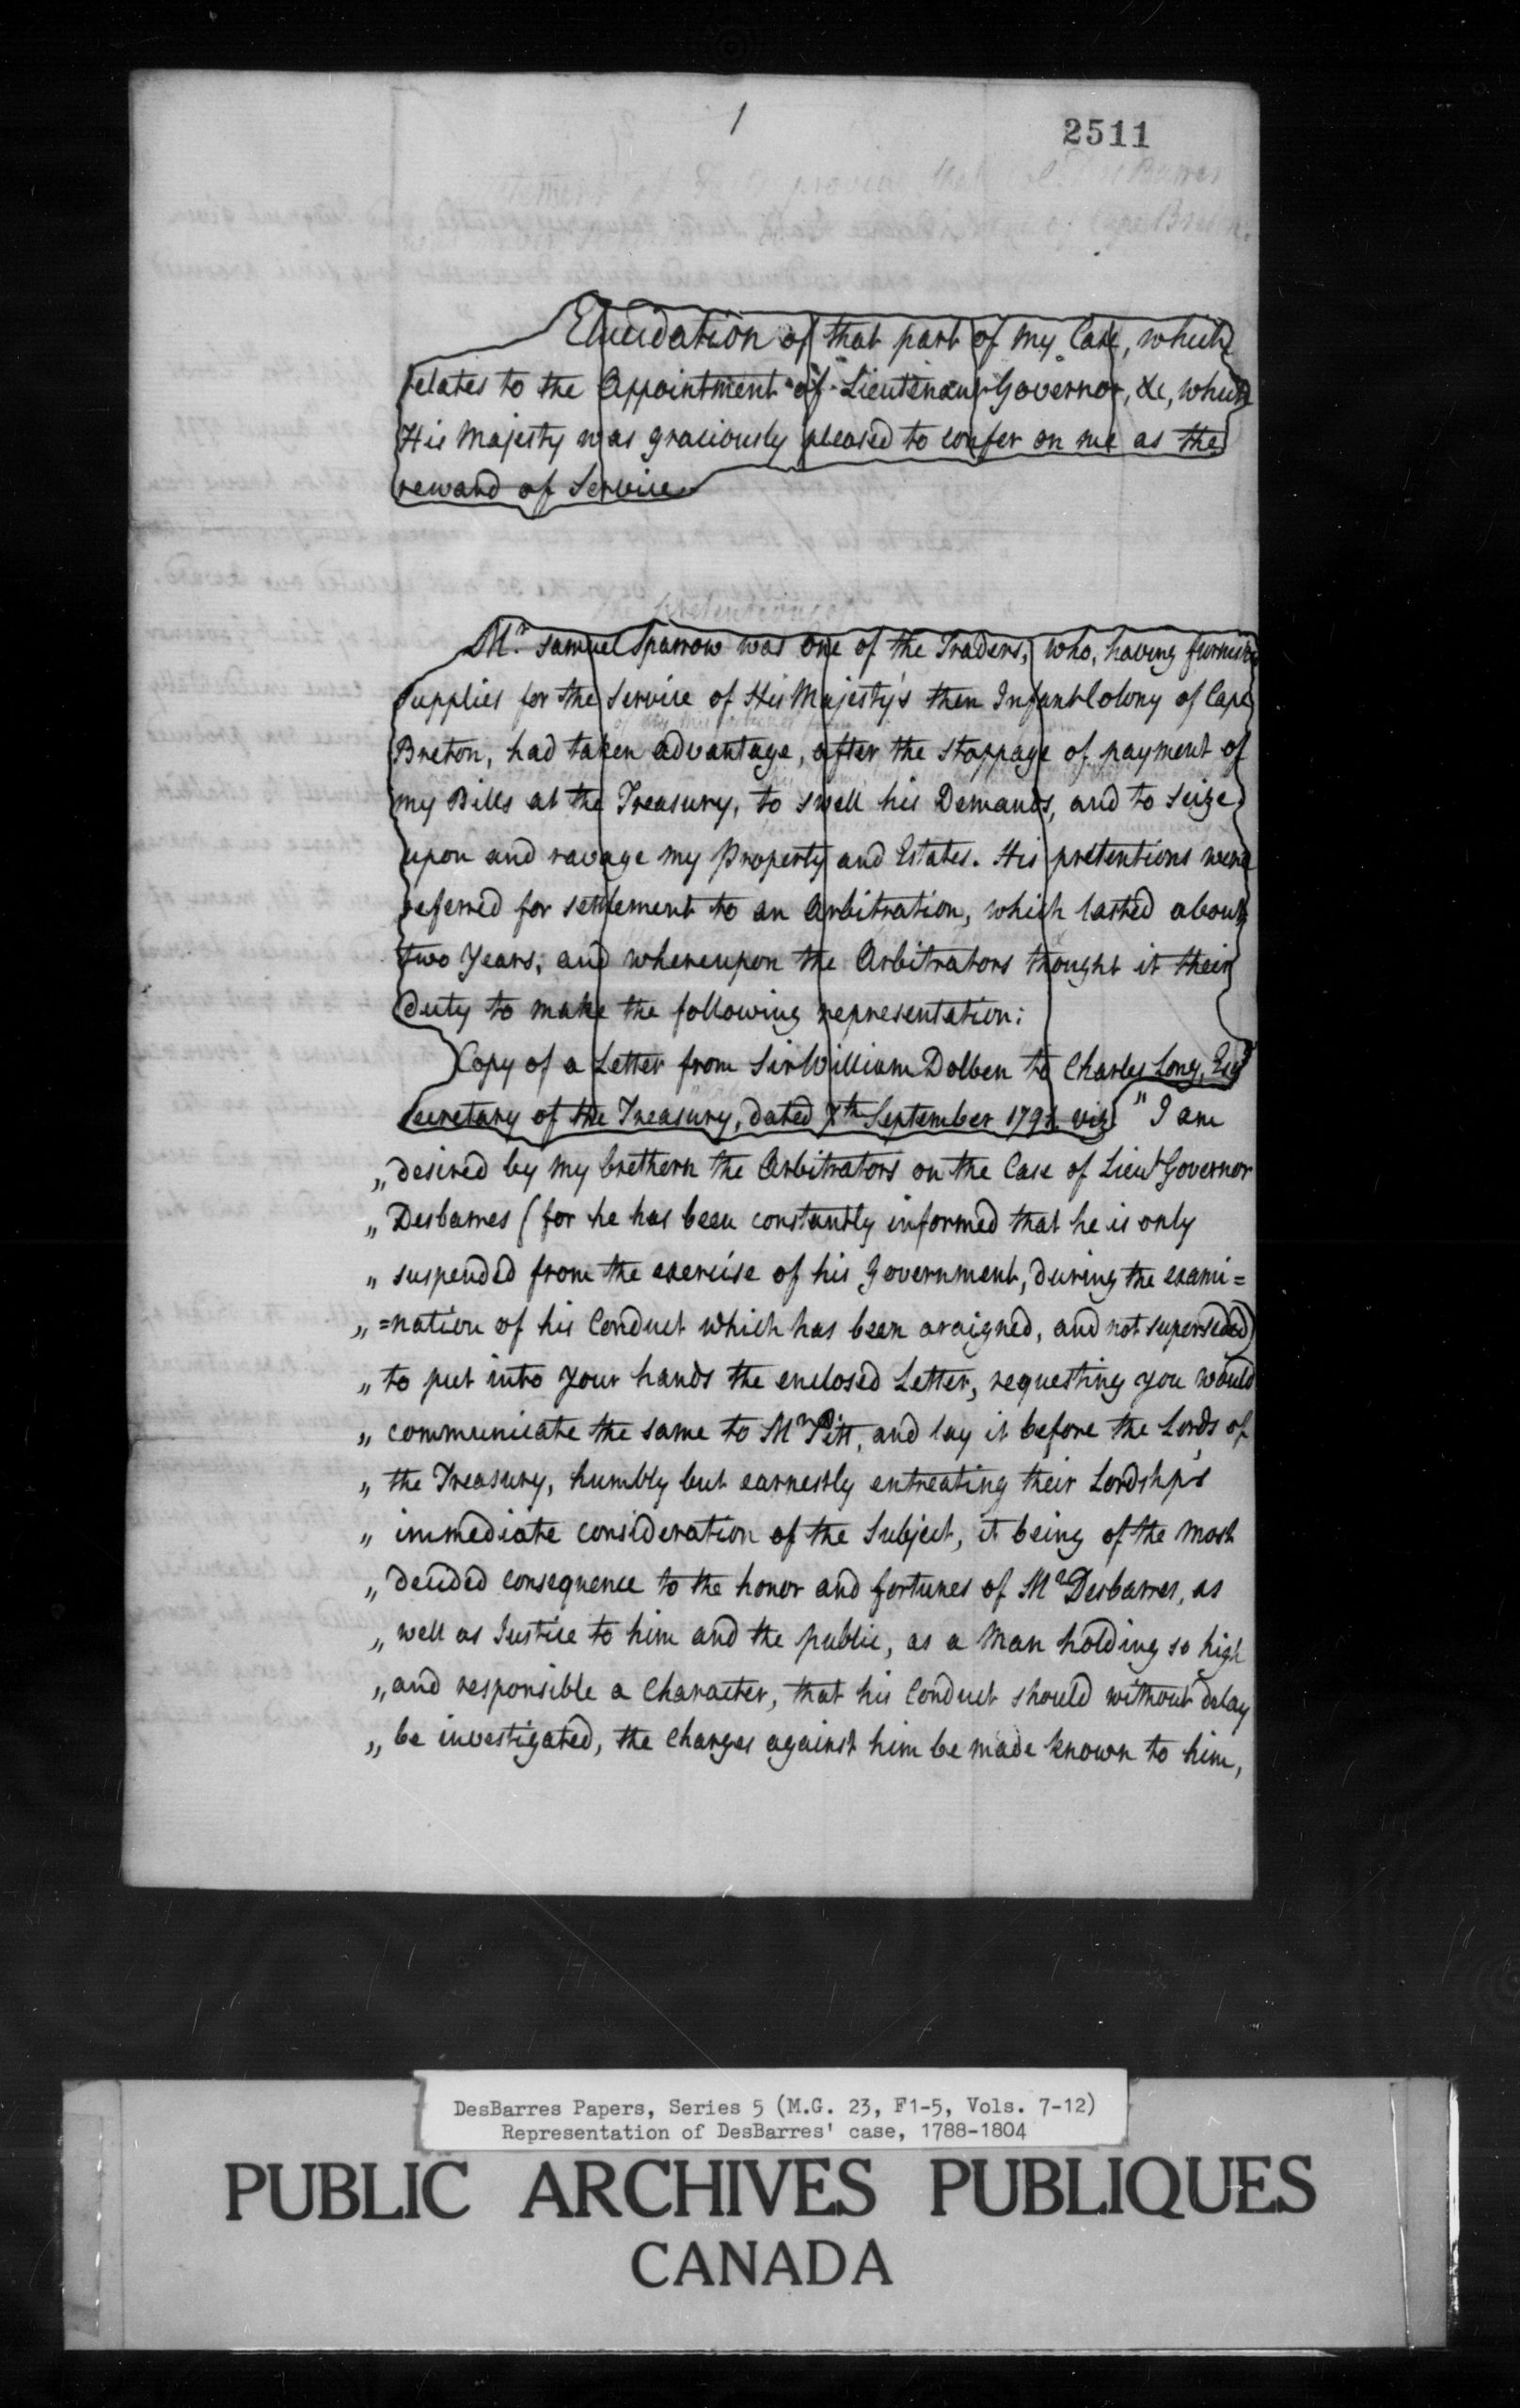 1
2511
Elucidation of that part of my Case, which
relates to the Appointment of Lieutenant Governor, &c, which
His Majesty was graciously pleased to confer on me as the
reward of Service
pretentions of
Mr. Samuel Sparrow was one of the Traders, who, having furnished
supplies for the Service of His Majesty's then Infant Colony of Cape
Breton, had taken advantage, after the stoppage of payment of
my Bills at the Treasury, to swell his Demands, and to seize
upon and ravage my Property and Estates. His pretentions were
referred for settlement to an Arbitration, which lasted about
two Years, and whereupon the Arbitrators thought it their
duty to make the following representation:
Copy of a Letter from Sir William Dolben to Charles Long, Esqr
Secretary of the Treasury, dated 7th September 1791. viz. "I am
„ desired by my brethern the Arbitrators on the Case of Lieut Governor
„ Desbarres (for he has been constantly informed that he is only
„ suspended from the exercise of his Government, during the exami=
„ =nation of his Conduct which has been araigned, and not superseded)
„ to put into your hands the enclosed Letter, requesting you would
„ communicate the same to Mr Pitt, and lay it before the Lords of
„ the Treasury, humbly but earnestly entreating their Lordship's
„ immediate consideration of the Subject, it being of the most
„ decided consequence to the honor and fortunes of Mr Desbarres, as
„ well as Justice to him and the public, as a Man holding so high
„ and responsible a Character, that his Conduct should without delay
„ be investigated, the Charges against him be made known to him,
DesBarres Papers, Series 5 (M.G. 23, F1-5, Vols. 7-12)
Representation of DesBarres' case, 1788-1804
PUBLIC ARCHIVES PUBLIQUES
CANADA